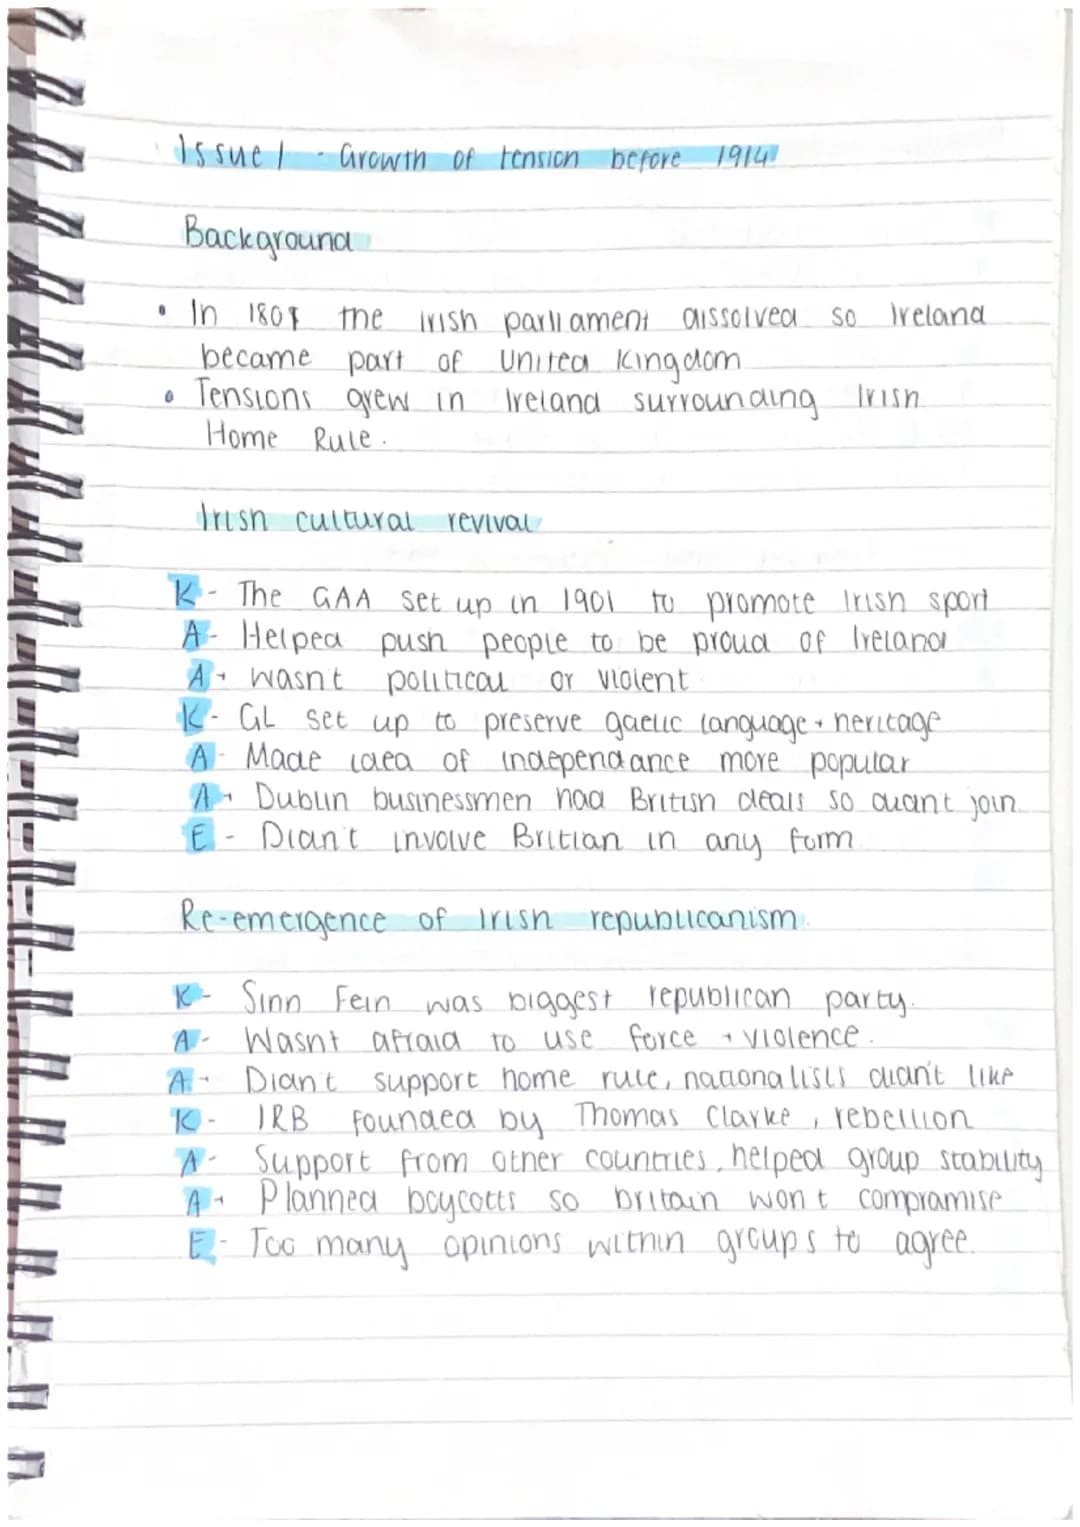 Issue 1 - Growth of tension before 1914
Background
• In 1801 the Irish parliament dissolved so Ireland
became part of United Kingdom
• Tensions grew in Ireland surrounding Irish
Home Rule.
Irish cultural revival
K - The GAA set up in 1901 to promote Irish sport
A - Helped push people to be proud of Ireland
A + Wasn't political or violent
K - GL set up to preserve gaelic language + heritage
A - Made idea of independance more popular
A + Dublin businessmen had British deals so didn't join
E - Didn't involve Britian in any form
Re-emergence of Irish republicanism.
K - Sinn Fein was biggest republican party.
A - Wasnt afraid to use force + violence.
A - Didn't support home rule, nationalists didn't like
K - IRB founded by Thomas Clarke, rebellion
A - Support from other countries, helped group stability
A + Planned boycotts so britain won't compramise
E - Too many opinions within groups to agree.